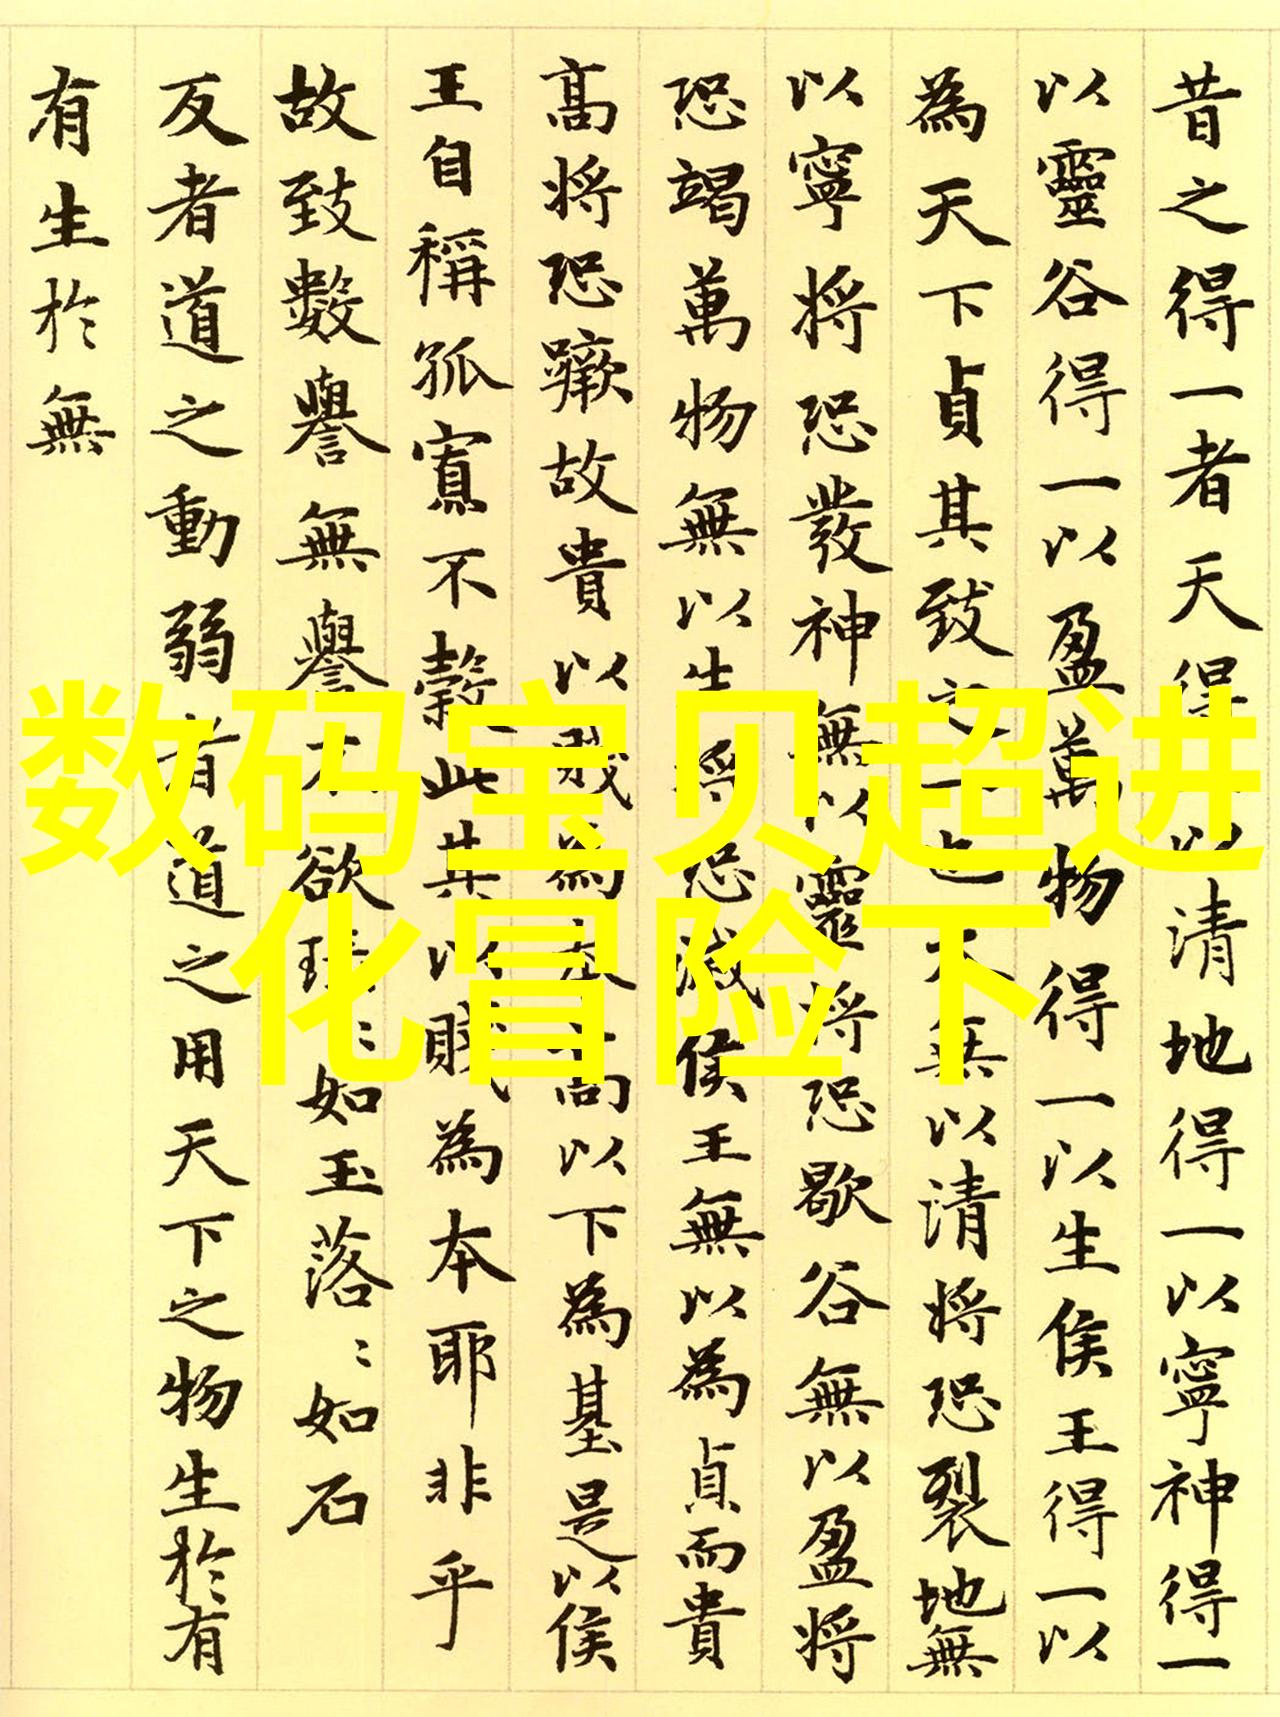 昔之得一者天得一以清地得一以寧神得一
以靈谷得一以盈萬物得一以生侯王得一以
為天下貞其致之一也天無以清將恐裂地無
以寧將恐發神無以靈將恐歇谷無以盈將
恐竭萬物無以生將恐滅侯王無以為貞而貴
高將恐蹶故貴以賤為本高以下為基是以侯
王自稱孤寡不穀此其以賤為本耶非乎
故致數譽無譽不欲琭〻如玉落〻如石
反者道之動弱者道之用天下之物生於有
有生於無
数码宝贝超进
化冒险下